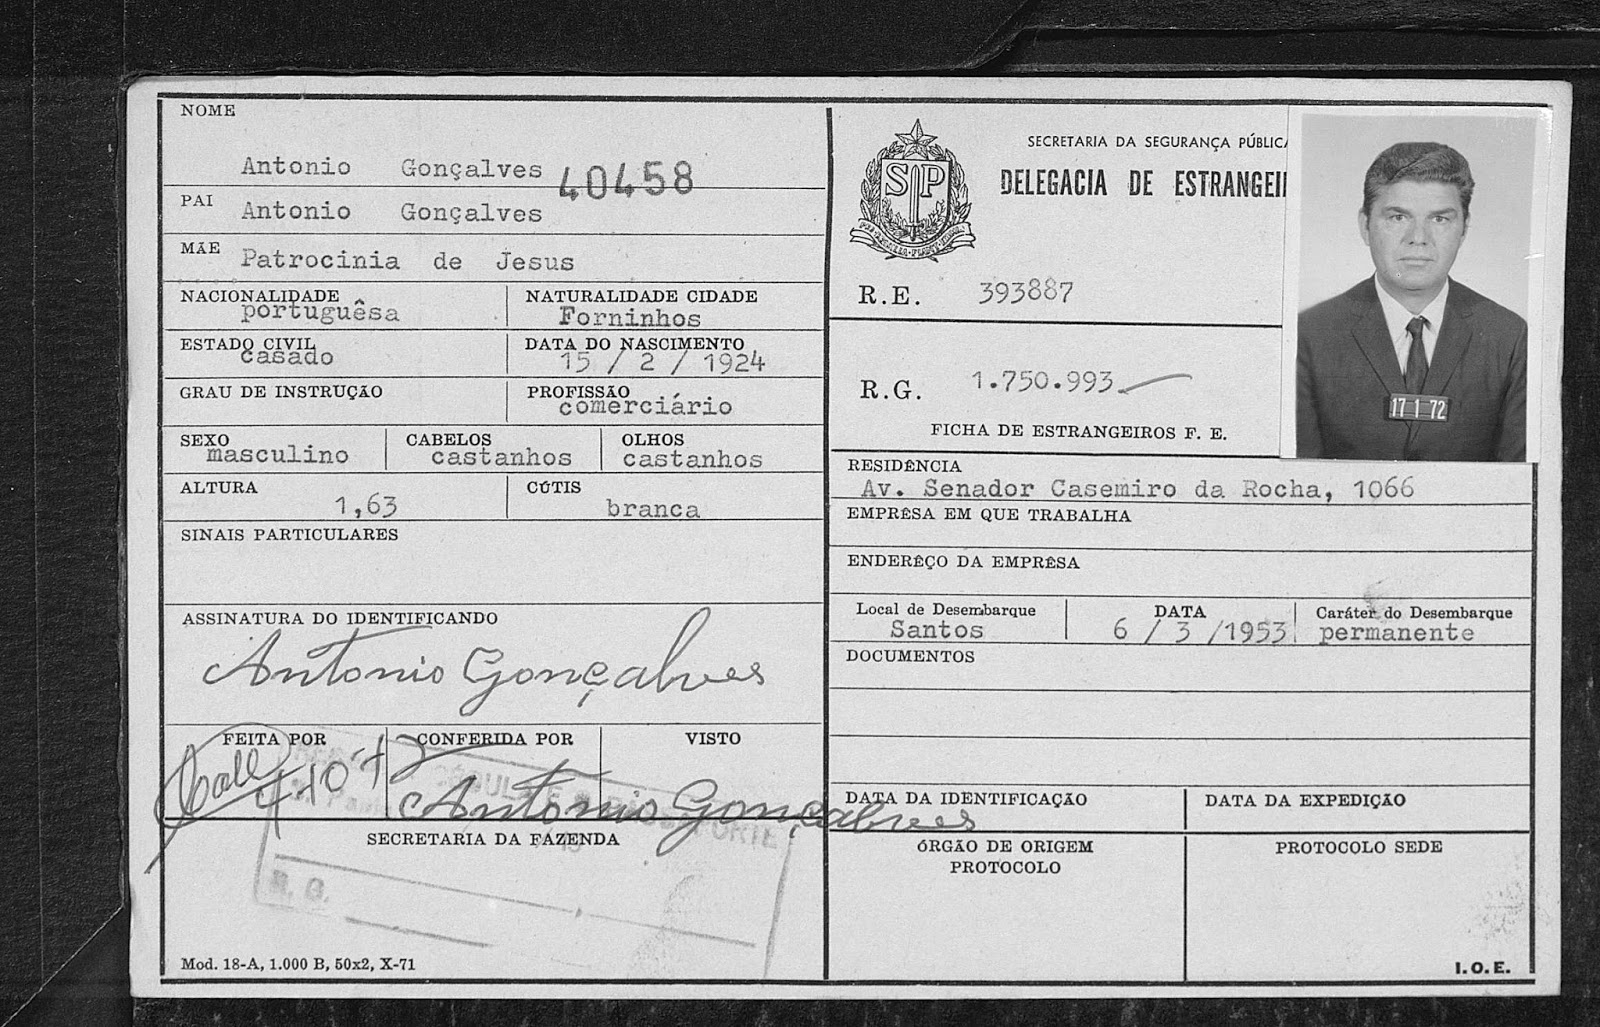 NOME
Antonio Gonçalves 40458
PAI Antonio Gonçalves
MÃE Patrocinia de Jesus
NACIONALIDADE
portuguêsa
NATURALIDADE CIDADE
Forninhos
ESTADO CIVIL
casado
DATA DO NASCIMENTO
15 / 2 / 1924
GRAU DE INSTRUÇÃO
PROFISSÃO
comerciário
SEXO
masculino
CABELOS
castanhos
OLHOS
castanhos
ALTURA
1,63
CÚTIS
branca
SINAIS PARTICULARES
ASSINATURA DO IDENTIFICANDO
Antonio Gonçalves
FEITA POR
CONFERIDA POR
VISTO
Antonio Gonçalves
SECRETARIA DA FAZENDA
R. G.
Mod. 18-A, 1.000 B, 50x2, X-71
SECRETARIA DA SEGURANÇA PÚBLICA
DELEGACIA DE ESTRANGEI
SP
R.E. 393887
R.G. 1.750.993
FICHA DE ESTRANGEIROS F. E.
17 1 72
RESIDÊNCIA
Av. Senador Casemiro da Rocha, 1066
EMPRÊSA EM QUE TRABALHA
ENDERÊÇO DA EMPRÊSA
Local de Desembarque
Santos
DATA
6 / 3 /1953
Caráter do Desembarque
permanente
DOCUMENTOS
DATA DA IDENTIFICAÇÃO
DATA DA EXPEDIÇÃO
ÓRGÃO DE ORIGEM
PROTOCOLO
PROTOCOLO SEDE
I.O.E.